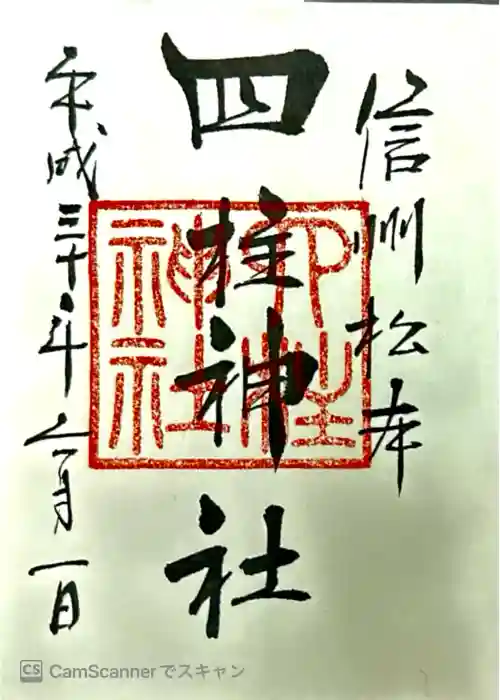 信州松本
四柱神社
平成三十年六月一日
柱
神社
CS CamScannerでスキャン